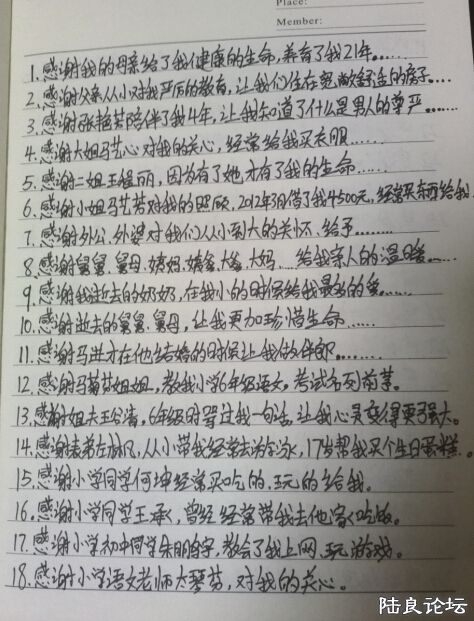 Place:
Member:
1.感谢我的母亲给了我健康的生命,养育了我21年......
2.感谢父亲从小对我严厉的教育,让我们住在宽敞舒适的房子....
3.感谢张艳芬陪伴了我4年,让我知道了什么是男人的尊严......
4.感谢大姐马艺心对我的关心,经常给我买衣服......
5.感谢二姐王锦丽,因为有了她才有了我的生命......
6.感谢小姐马艺芳对我的照顾,2012年3月借了我4500元,经常买东西给我
7.感谢外公、外婆对我们从小到大的关怀、给予........
8.感谢舅舅、舅母、姨妈、姨爹、大爹、大妈......给我亲人的温暖......
9.感谢我逝去的奶奶,在我小的时候给我最多的爱......
10.感谢逝去的舅舅、舅母,让我更加珍惜生命......
11.感谢马进才在他结婚的时候让我做伴郎........
12.感谢马菊芬姐姐,教我小学6年级语文,考试名列前茅。
13.感谢姐夫王谷清,6年级时骂过我一句话,让我心灵变得更强大。
14.感谢表弟,从小带我经常去游泳,17岁帮我买个生日蛋糕。
15.感谢小学同学何坤经常买吃的,玩的给我。
16.感谢小学同学王承,曾经经常带我去他家吃饭。
17.感谢小学初中同学朱,教会了我上网,玩游戏。
18.感谢小学语文老师大琴芳,对我的关心。
陆良论坛